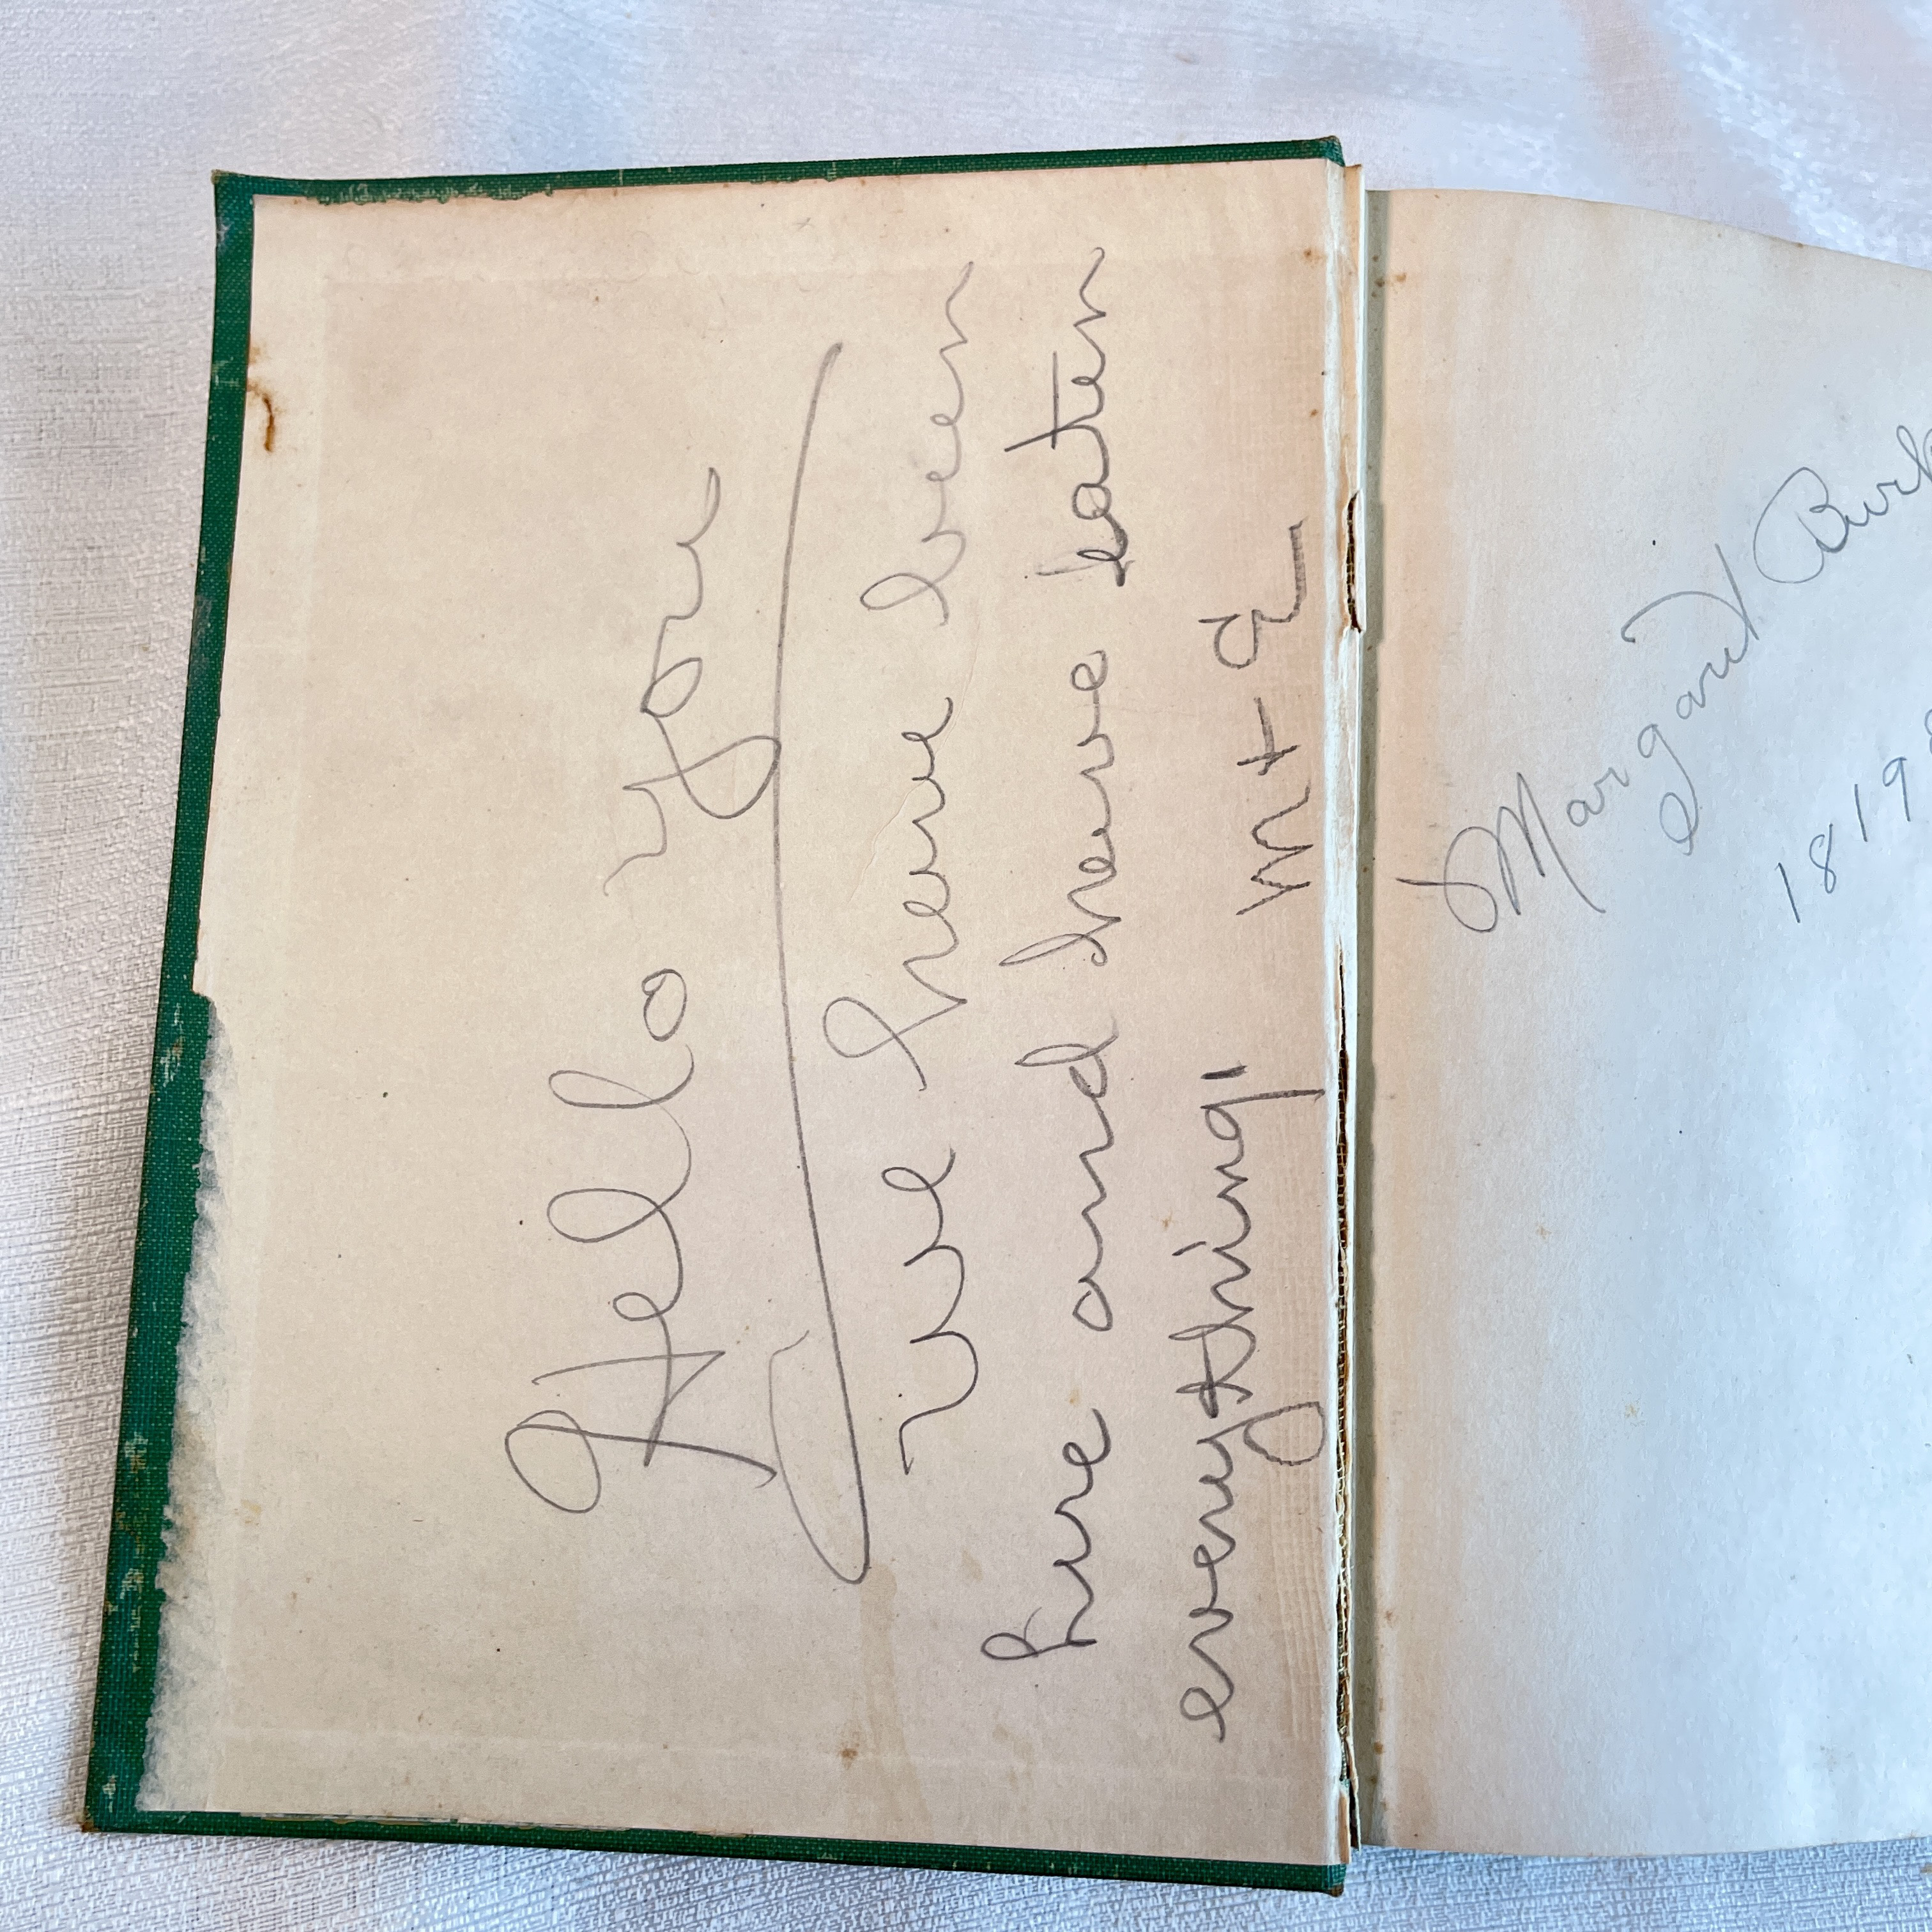 Hello you
We have been
here and have eaten
everything.
M + E
Margaret
1819